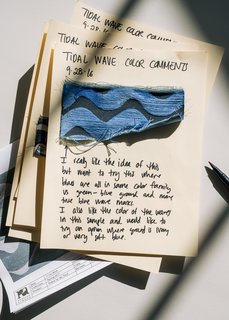 TIDAL WAVE COLOR COMMENTS
9.28.16
TIDAL WAVE COM
9.28.16
TIDAL WAVE COLOR COMMENTS
9.28.16
I really like the idea of this
but want to try this where
blue are all in same color family
vs green-blue ground and more
true blue wave marks.
I also like the color of the waves
in this sample and would like to
try an option where ground is ivory
or very pale blue.